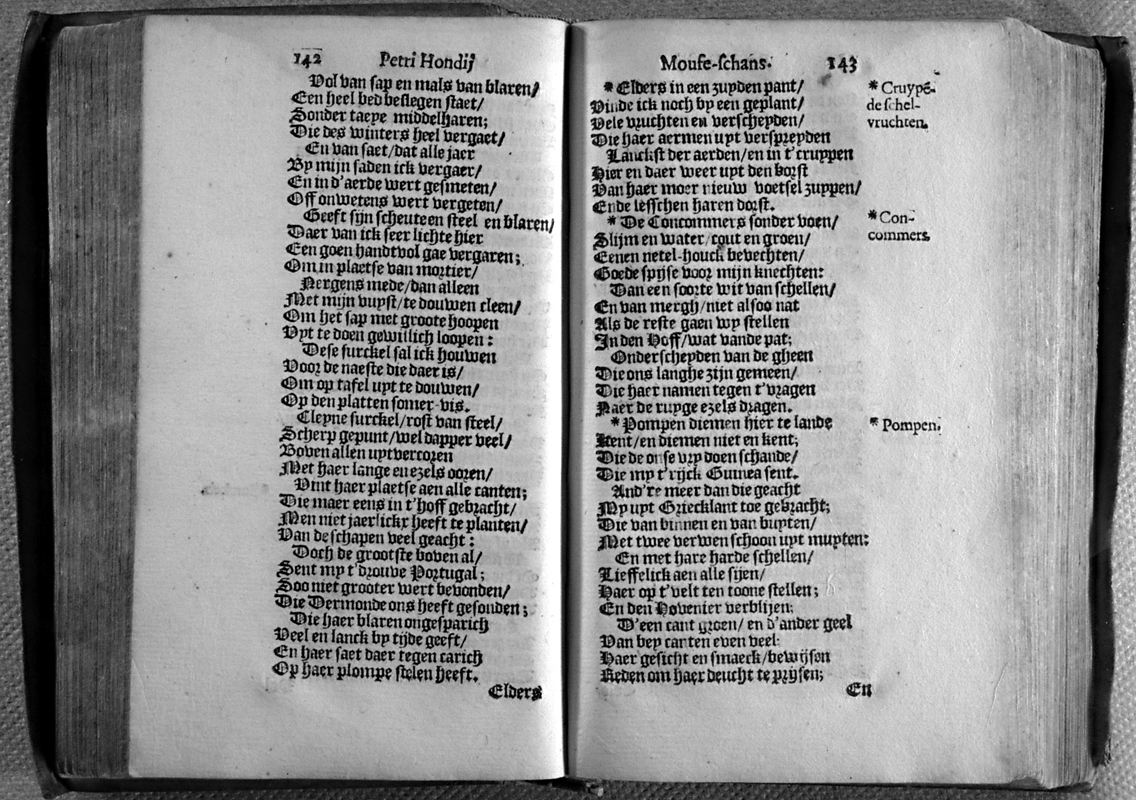 142 Petri Hondij
Vol van sap en mals van blaren/
Een heel bed beslegen staet/
Sonder taeye middelharen;
Die des winters heel vergaet/
En van saet/dat alle jaer
By mijn saden ick vergaer/
En in d'aerde wert gesmeten/
Off onwetens wert vergeten/
Geeft sijn scheute en steel en blaren/
Daer van ick seer lichte hier
Een goen handtvol gae vergaren;
Om in plaetse van mortier/
Nergens mede/dan alleen
Met mijn vuyst/te douwen cleen/
Om het sap met groote hoopen
Uyt te doen gewillich loopen:
Dese surckel sal ick houwen
Voor de naeste die daer is/
Om op tafel uyt te douwen/
Op den platten somer-vis.
Cleyne surckel/rost van steel/
Scherp gepunt/wel dapper veel/
Boven allen uytvercoren
Met haer lange en ezels ooren/
Vint haer plaetse aen alle canten;
Die maer eens in t'hoff gebracht/
Men niet jaerlickx heeft te planten/
Van de schapen veel geacht:
Doch de grootste boven al/
Sent my t'drouve Portugal;
Soo niet grooter wert bevonden/
Die Dermonde ons heeft gesonden;
Die haer blaren ongesparich
Veel en lanck by tijde geeft/
En haer saet daer tegen carich
Op haer plompe stelen heeft.
Elders
Mouse-schans. 143
* Elders in een zuyden pant/
Vinde ick noch by een geplant/
Vele vruchten en verscheyden/
Die haer aermen uyt verspreyden
Lanckst der aerden/en in t'cruypen
Hier en daer weer uyt den borst
Van haer moer nieuw voetsel zuypen/
Ende lesschen haren dorst.
* De Concommers sonder voen/
Slijm en water/cout en groen/
Eenen netel-houck bevechten/
Goede spijse voor mijn knechten:
Dan een soorte wit van schellen/
En van mergh/niet alsoo nat
Als de reste gaen wy stellen
In den Hoff/wat vande pat;
Onderscheyden van de gheen
Die ons langhe zijn gemeen/
Die haer namen tegen t'vragen
Naer de ruyge ezels dragen.
* Pompen diemen hier te lande
Kent/en diemen niet en kent;
Die de onse vry doen schande/
Die my t'rijck Guinea sent.
And're meer dan die geacht
My uyt Griecklant toe gebracht;
Die van binnen en van buyten/
Met twee verwen schoon uyt muyten:
En met hare harde schellen/
Lieffelick aen alle sijen/
Haer op t'velt ten toone stellen;
En den Hovenier verblijen:
D'een cant groen/ en d'ander geel
Van bey canten even veel:
Haer gesicht en smaeck/bewijsen
Reden om haer deucht te prijsen;
En
* Cruypē-
de schel-
vruchten.
* Con-
commers
* Pompen.